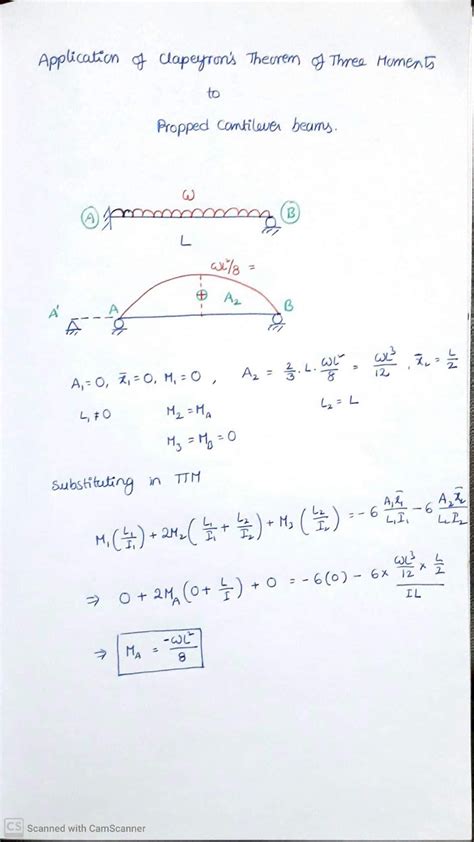 Application of Clapeyron's Theorem of Three Moments
to
Propped Cantilever beams.
ω
A B
L
ωL²/8 =
A' A ⊕ A₂ B
A₁ = 0, x̄₁ = 0, M₁ = 0, A₂ = 2/3 · L · ωL²/8 = ωL³/12, x̄₂ = L/2
L₁ ≠ 0 M₂ = M_A L₂ = L
M₃ = M_B = 0
Substituting in TTM
M₁(L₁/I₁) + 2M₂(L₁/I₁ + L₂/I₂) + M₃(L₂/I₂) = -6 A₁x̄₁/L₁I₁ - 6 A₂x̄₂/L₂I₂
⇒ 0 + 2M_A(0 + L/I) + 0 = -6(0) - 6 × ωL³/12 × L/2 / IL
⇒ M_A = -ωL²/8
CS Scanned with CamScanner